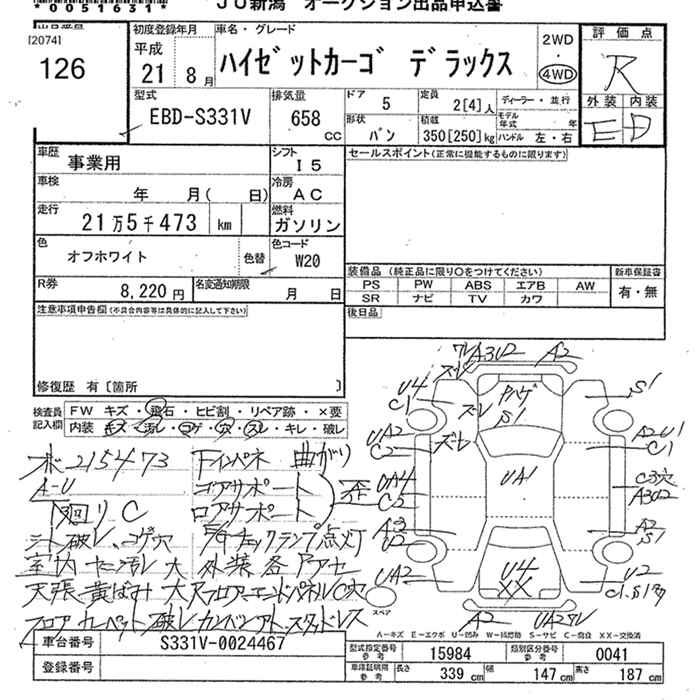 *0051631*
JU新潟 オークション出品申込書
[2074]
126
初度登録年月
平成
21年 8月
車名・グレード
ハイゼットカーゴ デラックス
2WD
・
4WD
評価点
R
外装 内装
E D
型式
EBD-S331V
排気量
658
CC
ドア 5
定員 2[4]人
ディーラー・並行
形状 バン
積載 350[250]kg
モデル年式 年
ハンドル 左・右
車歴 事業用
シフト I5
セールスポイント(正常に機能するものに限ります)
車検 年 月( 日)
冷房 AC
走行 21万5千473 km
燃料 ガソリン
色 オフホワイト
色替
色コード W20
装備品(純正品に限り○をつけてください)
新車保証書
PS PW ABS エアB AW
SR ナビ TV カワ
有・無
R券 8,220円
名変通知期限 月 日
後日品
注意事項申告欄(不具合内容等は具体的に記入して下さい)
修復歴 有[箇所 ]
検査員記入欄
FW キズ・飛石・ヒビ割・リペア跡・×要
内装 キズ・汚レ・コゲ・穴・スレ・キレ・破レ
A3U2 A2
U4 ズレ ハゲ S1
C1 ズレ S1
UA2 ズレ A2-U1
C2 C1
UA4 UA1 C3穴
C2 A3U2
A3 A2
U2 S1
UA2 U4 U2
XX
A2
スペア
215473 下インパネ 曲がり
A-U コアサポート 歪
下廻り C ロアサポート
シート破レ、コゲ穴 エンジンチェックランプ点灯
室内 汚レ 大 外装各
天張 黄ばみ 大 フロアーエンドパネルC穴
フロアカーペット破レ スタッドレス
A-キズ E-エクボ U-凹み W-補修跡 S-サビ C-腐食 XX-交換済
車台番号 S331V-0024467
登録番号
型式指定番号 参考 15984
類別区分番号 参考 0041
車庫証明用 参考 長さ 339 cm 幅 147 cm 高さ 187 cm